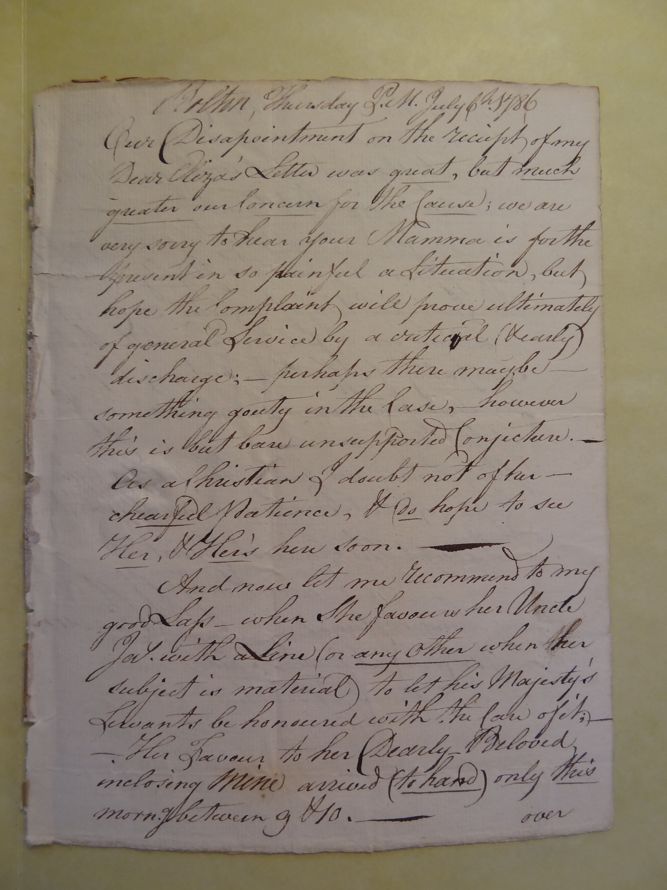 Bolton, Thursday P.M. July 6th. 1786
Our Disapointment on the reciept of my
Dear Eliza's Letter was great, but much
greater our Concern for the Cause; we are
very sorry to hear your Mamma is for the
present in so painful a Situation, but
hope the Complaint will prove ultimately
of general Service by a critical (& early)
discharge; — perhaps there may be —
something gouty in the Case, — however
this is but bare unsupported Conjecture. —
As a Christian I doubt not of her —
chearful Patience, & do hope to see
Her, & Her's here soon. —
And now let me recommend to my
good Lass — when She favours her Uncle
Jas. with a Line (or any other when the
subject is material) to let his Majesty's
Servants be honoured with the Care of it; —
— Her Favour to her Dearly Beloved
inclosing Mine arrived (to hand) only this
morng. between 9 & 10. —
over